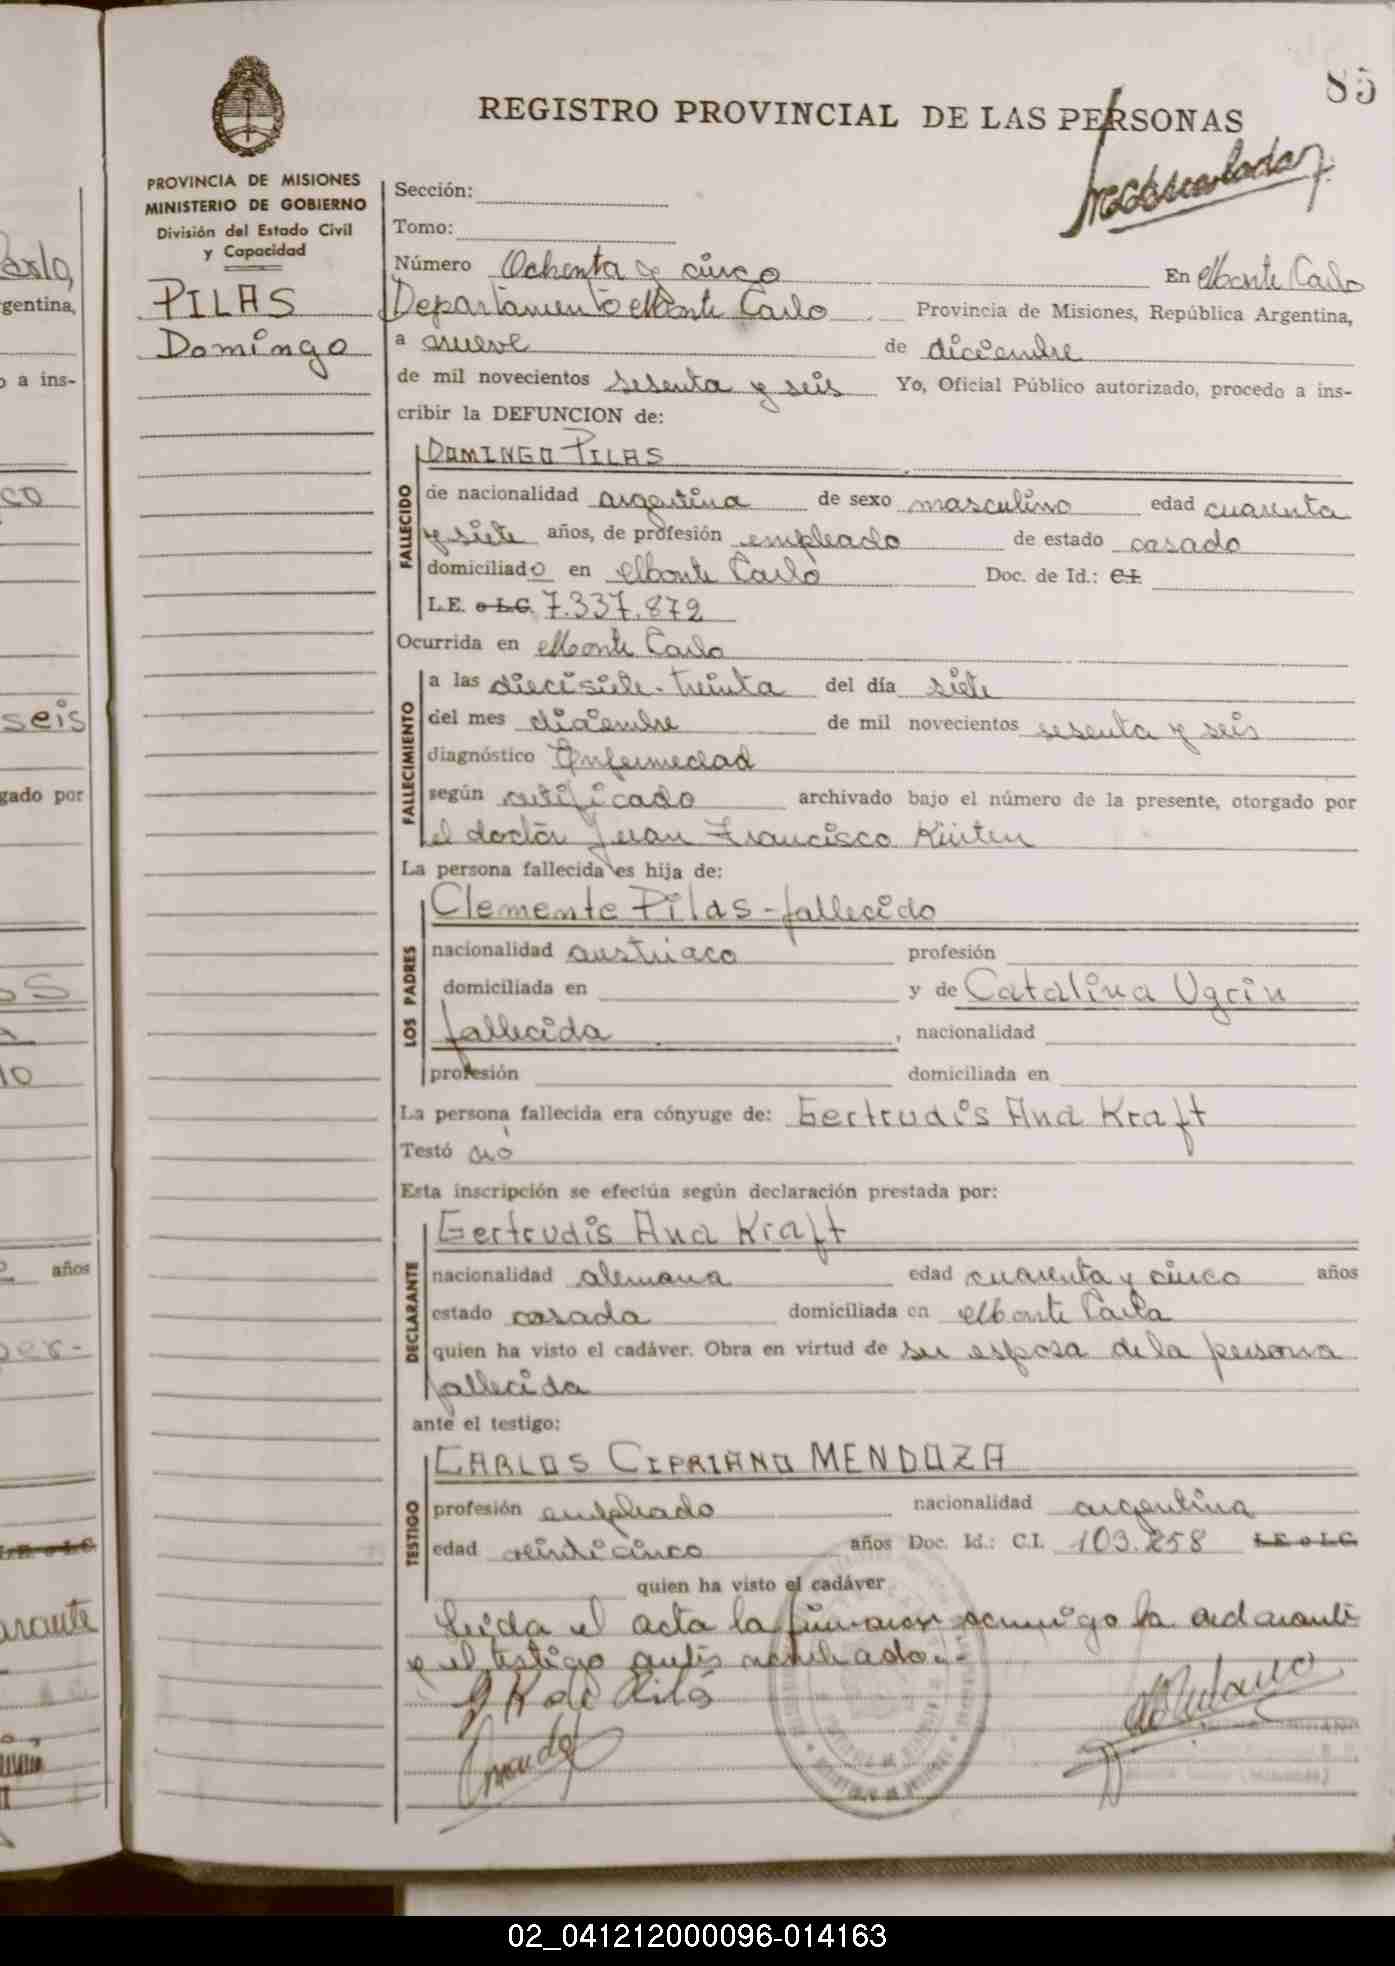 85
REGISTRO PROVINCIAL DE LAS PERSONAS
PROVINCIA DE MISIONES
MINISTERIO DE GOBIERNO
División del Estado Civil
y Capacidad
PILAS
Domingo
Sección:
Tomo:
Número Ochenta y cinco En Monte Carlo
Departamento Monte Carlo Provincia de Misiones, República Argentina,
a nueve de diciembre
de mil novecientos sesenta y seis Yo, Oficial Público autorizado, procedo a ins-
cribir la DEFUNCION de:
DOMINGO PILAS
FALLECIDO
de nacionalidad argentina de sexo masculino edad cuarenta
y siete años, de profesión empleado de estado casado
domiciliado en Monte Carlo Doc. de Id.: CI
L.E. o L.C. 7.337.872
Ocurrida en Monte Carlo
FALLECIMIENTO
a las diecisiete-treinta del día siete
del mes diciembre de mil novecientos sesenta y seis
diagnóstico Enfermedad
según certificado archivado bajo el número de la presente, otorgado por
el doctor Juan Francisco Kürten
La persona fallecida es hija de:
LOS PADRES
Clemente Pilas - fallecido
nacionalidad austriaco profesión
domiciliada en y de Catalina Ugrin
fallecida, nacionalidad
profesión domiciliada en
La persona fallecida era cónyuge de: Gertrudis Ana Kraft
Testó no
Esta inscripción se efectúa según declaración prestada por:
DECLARANTE
Gertrudis Ana Kraft
nacionalidad alemana edad cuarenta y cinco años
estado casada domiciliada en Monte Carlo
quien ha visto el cadáver. Obra en virtud de ser esposa de la persona
fallecida
ante el testigo:
TESTIGO
CARLOS CIPRIANO MENDOZA
profesión empleado nacionalidad argentina
edad veinticinco años Doc. Id.: C.I. 103.258 L.E. o L.C.
quien ha visto el cadáver
Leida el acta la firmaron conmigo la declarante
y el testigo antes nombrado.-
02_041212000096-014163